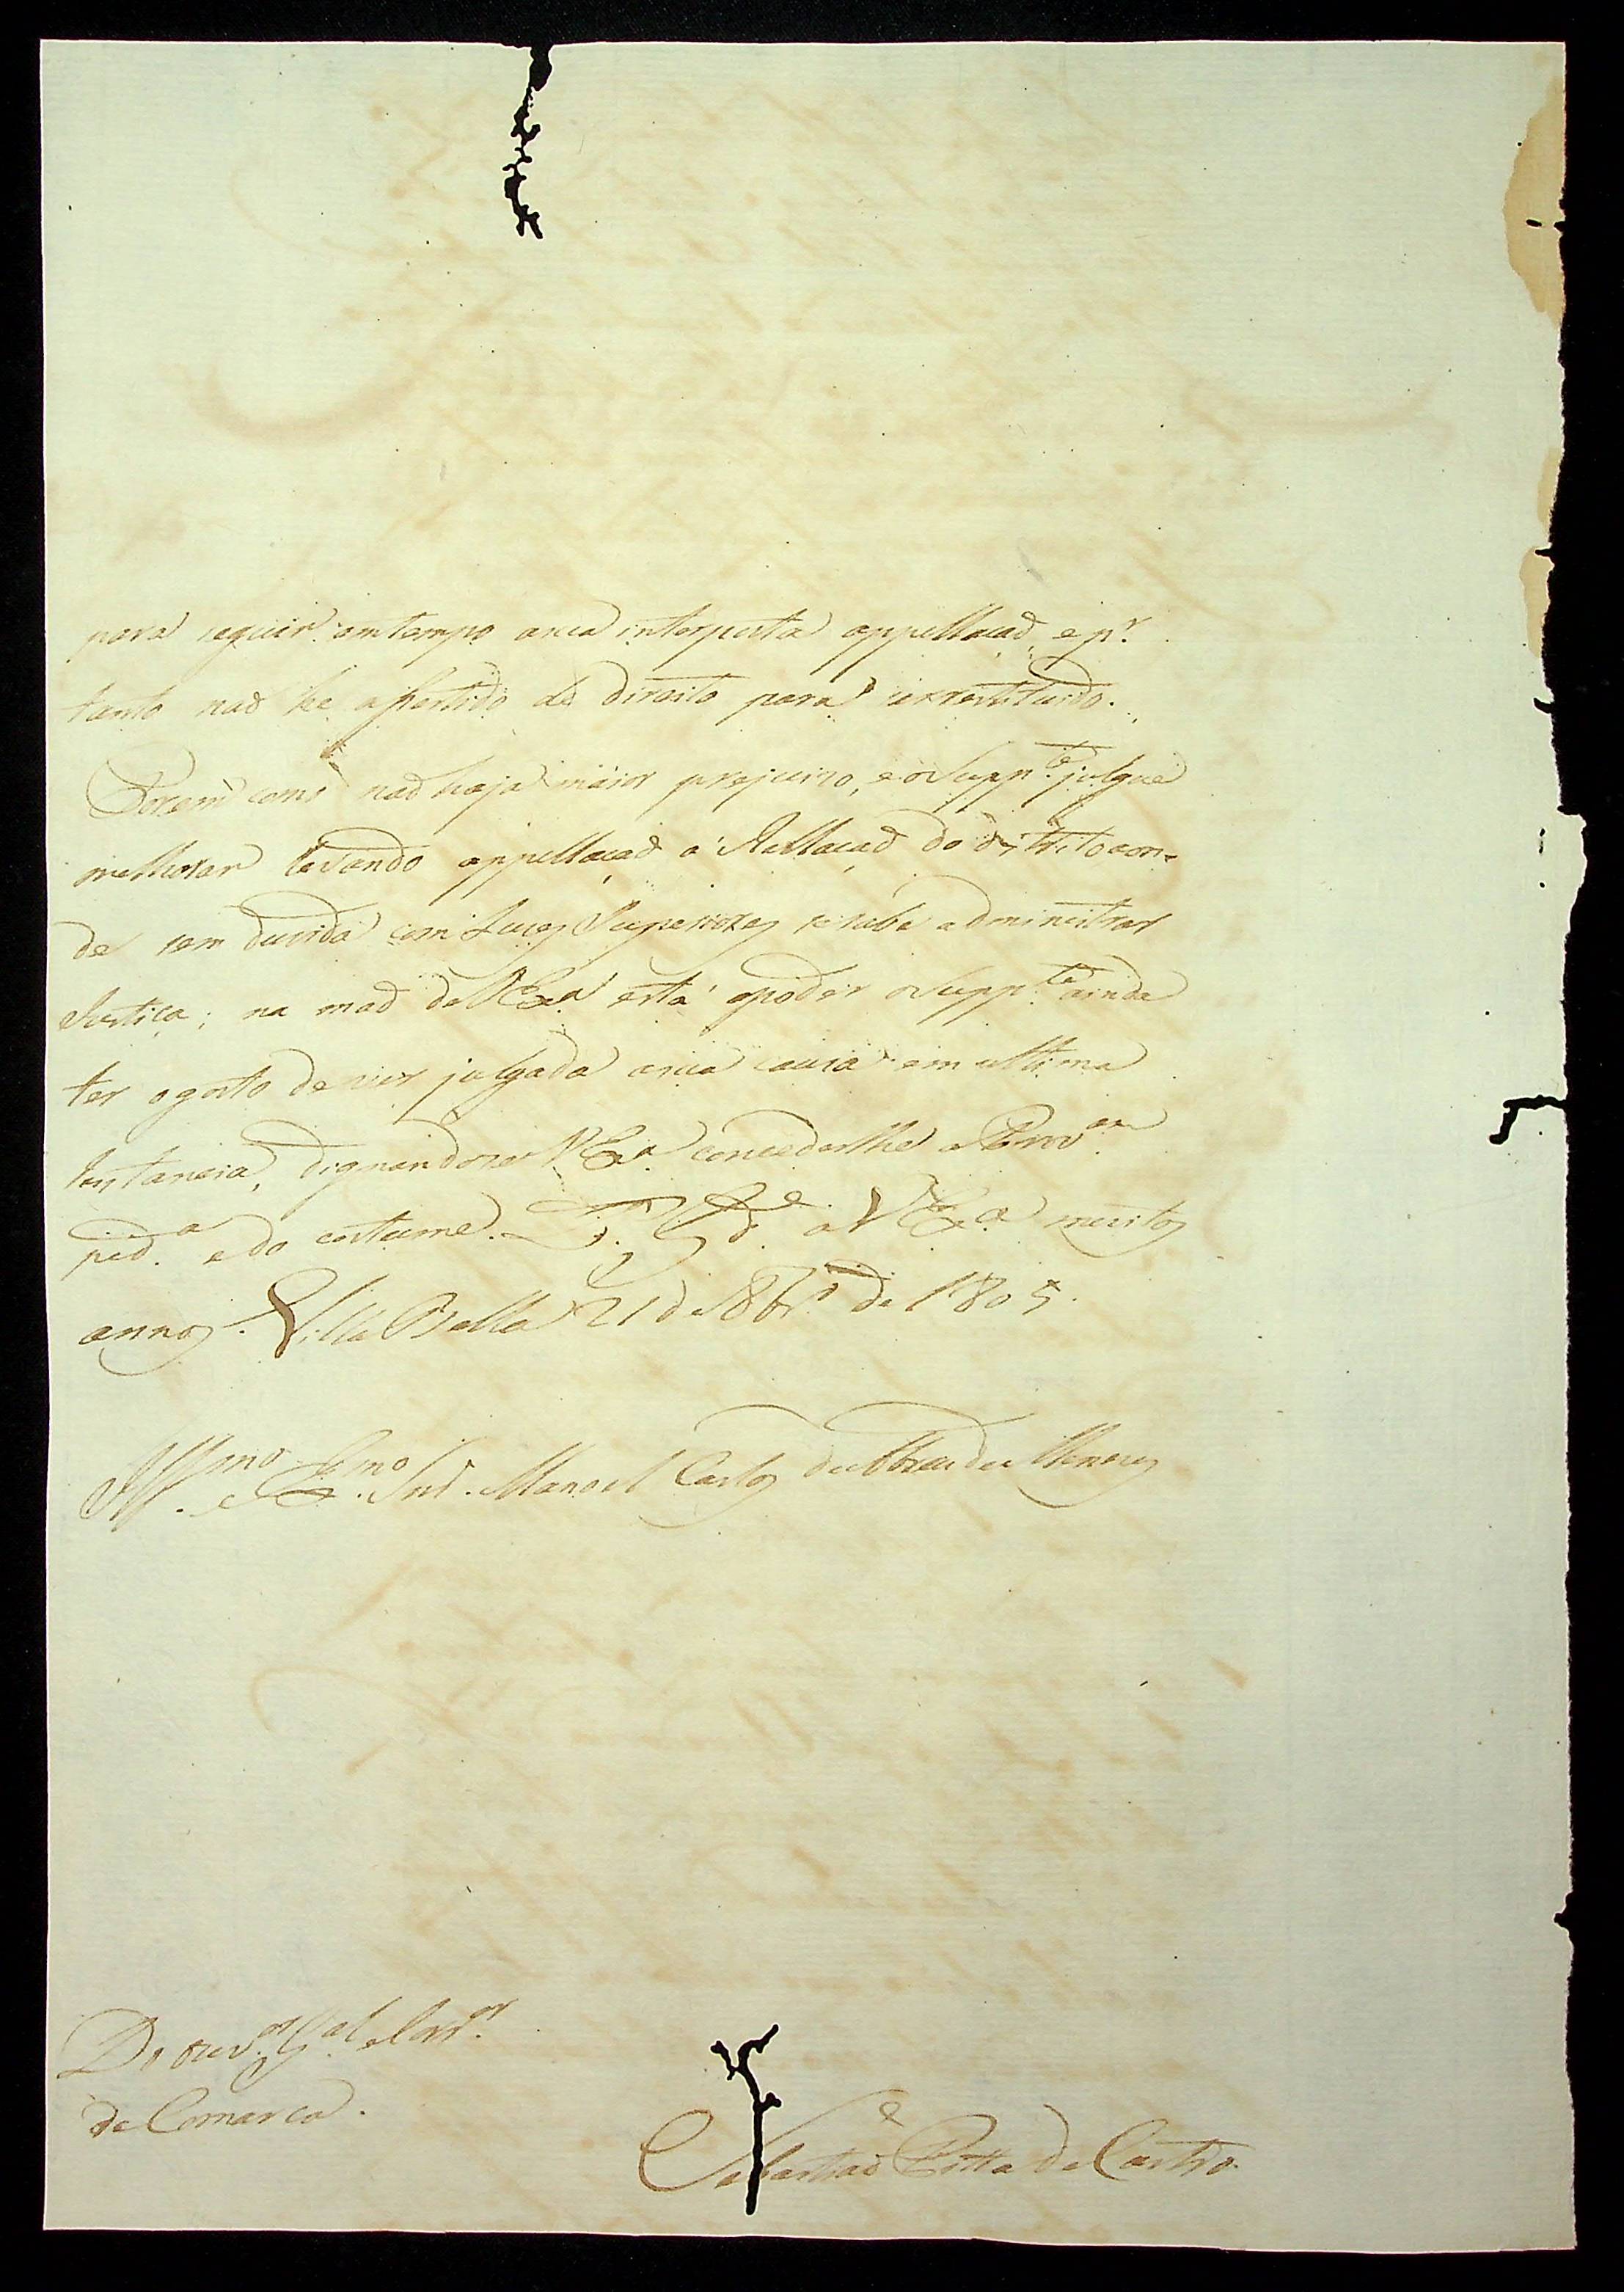 para seguir em tempo asua interposta appellaçaõ, e p.r
tanto naõ he asistido de direito para ser restituido.
Porem como naõ haja maior prejuizo, e o Supp.te julgue
melhorar levando appellaçaõ á Rellaçaõ do distrito aon-
de sem duvida com Luzes Superiores se sabe administrar
Justiça; na maõ de V Ex.a está o poder o Supp.te ainda
ter o gosto de ver julgada asua causa em ultima
Instancia, dignandose V Ex.a concederlhe a Prov.am
ped.a e do costume. D.s G.de a V Ex.a muitos
annos. Villa Bella 21 de 8br.o de 1805.
Ill.mo e Ex.mo Snr. Manoel Carlos de Abreu de Menezes
Do ouv.or G.al e Corr.or
da Comarca.
Sebastiaõ Pitta de Castro.